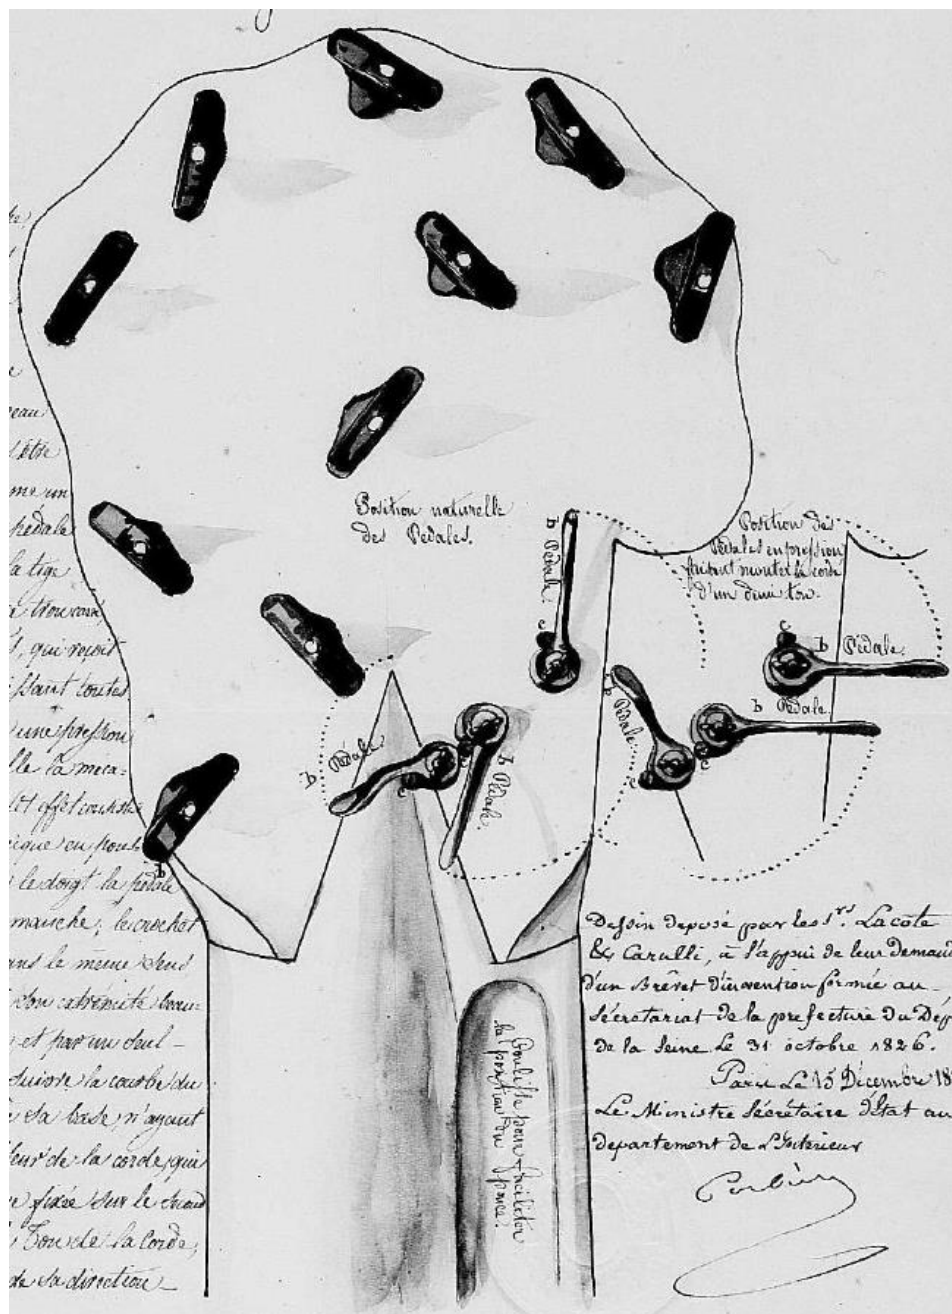 eau
être
me un
pédale
la tige
a trou carré
, qui reçoit
issant toutes
une pression
lle la meca-
et effet consiste
ique en pous
le doigt la pédale
marche; le crochet
ans le même sens
son extrémité
et par un seul -
suivre la courbe du
sa base, n'ayant
de la corde, qui
fixée sur le
Ton de la Corde,
de sa direction
Position naturelle
des Pédales.
b Pédale.
c
Position des
Pédales en pression
faisant monter la corde
d'un demi ton.
c
b Pédale.
b Pédale.
c
b Pédale.
c
b Pédale.
c
b Pédale.
c
b
Coulisse pour faciliter
la position du
pouce.
Dessin deposé par les Srs. Lacote
& Carulli, à l'appui de leur Demand
d'un Brévet D'invention formée au -
Sécretariat de la prefecture du Dép
de la Seine Le 31 octobre 1826.
Paris Le 15 Décembre 18
Le Ministre Sécrétaire d'Etat au
département de L'Intérieur